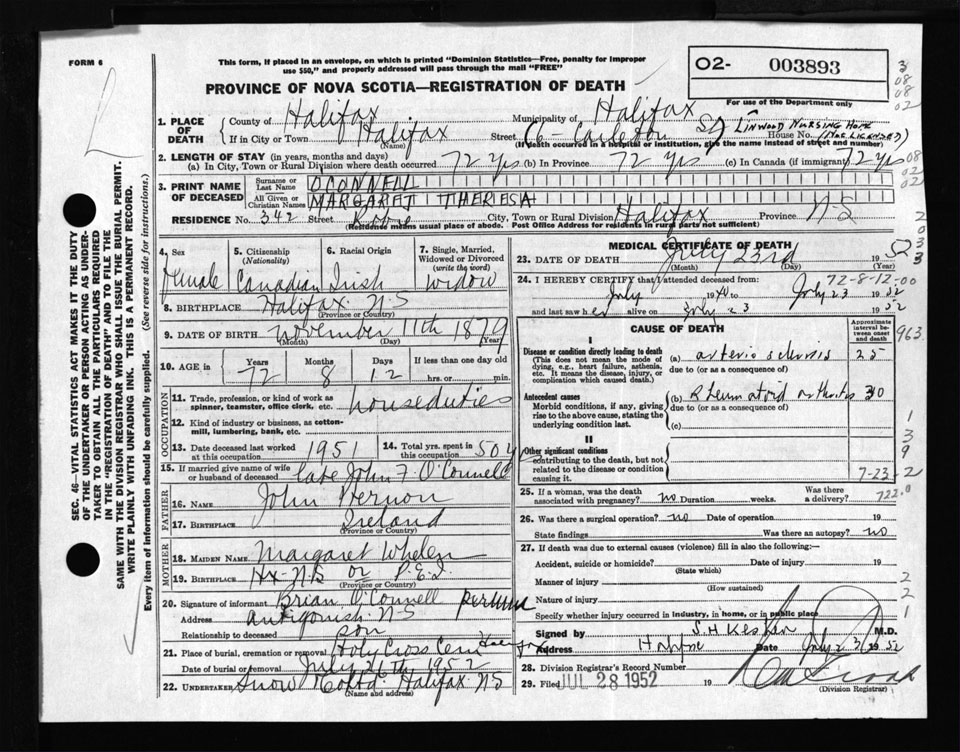 FORM 6
This form, if placed in an envelope, on which is printed "Dominion Statistics—Free, penalty for improper
use $50," and properly addressed will pass through the mail "FREE"
O2- 003893
PROVINCE OF NOVA SCOTIA—REGISTRATION OF DEATH
For use of the Department only
1. PLACE OF DEATH
County of Halifax Municipality of Halifax
If in City or Town Halifax (Name) Street 66- Carleton St Linwood Nursing Home House No. (Not Licensed)
(If death occurred in a hospital or institution, give the name instead of street and number)
2. LENGTH OF STAY (in years, months and days)
(a) In City, Town or Rural Division where death occurred 72 yrs (b) In Province 72 yrs (c) In Canada (if immigrant) 72 yrs
3. PRINT NAME OF DECEASED
Surname or Last Name O'CONNELL
All Given or Christian Names MARGARET THERESA
RESIDENCE No. 342 Street Robie City, Town or Rural Division Halifax Province N-S
(Residence means usual place of abode. Post Office Address for residents in rural parts not sufficient)
4. Sex Female
5. Citizenship (Nationality) Canadian
6. Racial Origin Irish
7. Single, Married, Widowed or Divorced (write the word) Widow
8. BIRTHPLACE Halifax N-S
(Province or Country)
9. DATE OF BIRTH November 11th 1879
(Month) (Day) (Year)
10. AGE in Years 72 Months 8 Days 12 If less than one day old
hrs. or min.
OCCUPATION
11. Trade, profession, or kind of work as spinner, teamster, office clerk, etc. houseduties
12. Kind of industry or business, as cotton-mill, lumbering, bank, etc.
13. Date deceased last worked 1951 14. Total yrs. spent in occupation 50 y
15. If married give name of wife or husband of deceased Late John F. O'Connell
FATHER
16. NAME John Vernon
17. BIRTHPLACE Ireland
(Province or Country)
MOTHER
18. MAIDEN NAME Margaret Whelen
19. BIRTHPLACE Hx-N-S or P.E.I.
(Province or Country)
20. Signature of informant Brian O'Connell
Address Antigonish N-S
Relationship to deceased son
21. Place of burial, cremation or removal Holy Cross Cem
Date of burial or removal July 26th 1952
22. UNDERTAKER Snow Co Ltd. Halifax N-S
(Name and address)
MEDICAL CERTIFICATE OF DEATH
23. DATE OF DEATH July 23rd 1952
(Month) (Day) (Year)
24. I HEREBY CERTIFY that I attended deceased from: 72-8-12-00
July 1940 to July 23 1952
and last saw her alive on July 23 1952
CAUSE OF DEATH
Approximate interval between onset and death
I
Disease or condition directly leading to death (a) arterio sclerosis 25
(This does not mean the mode of dying, e.g., heart failure, asthenia, etc. It means the disease, injury, or complication which caused death.) due to (or as a consequence of)
Antecedent causes (b) Rheumatoid arthritis 30
Morbid conditions, if any, giving rise to the above cause, stating the underlying condition last. due to (or as a consequence of)
(c)
II
Other significant conditions
contributing to the death, but not related to the disease or condition causing it.
7-23-2
25. If a woman, was the death associated with pregnancy? no Duration weeks. Was there a delivery? 722.0
26. Was there a surgical operation? no Date of operation 19
State findings Was there an autopsy? no
27. If death was due to external causes (violence) fill in also the following:—
Accident, suicide or homicide? Date of injury 19
(State which)
Manner of injury
(How sustained)
Nature of injury
Specify whether injury occurred in industry, in home, or in public place
Signed by M.D.
Address Halifax Date July 23 1952
28. Division Registrar's Record Number
29. Filed JUL 28 1952 19
(Division Registrar)
SEC. 46—VITAL STATISTICS ACT MAKES IT THE DUTY
OF THE UNDERTAKER OR PERSON ACTING AS UNDER-
TAKER TO OBTAIN ALL THE PARTICULARS REQUIRED
IN THE "REGISTRATION OF DEATH" AND TO FILE THE
SAME WITH THE DIVISION REGISTRAR WHO SHALL ISSUE THE BURIAL PERMIT.
WRITE PLAINLY WITH UNFADING INK. THIS IS A PERMANENT RECORD.
Every item of information should be carefully supplied. (See reverse side for instructions.)